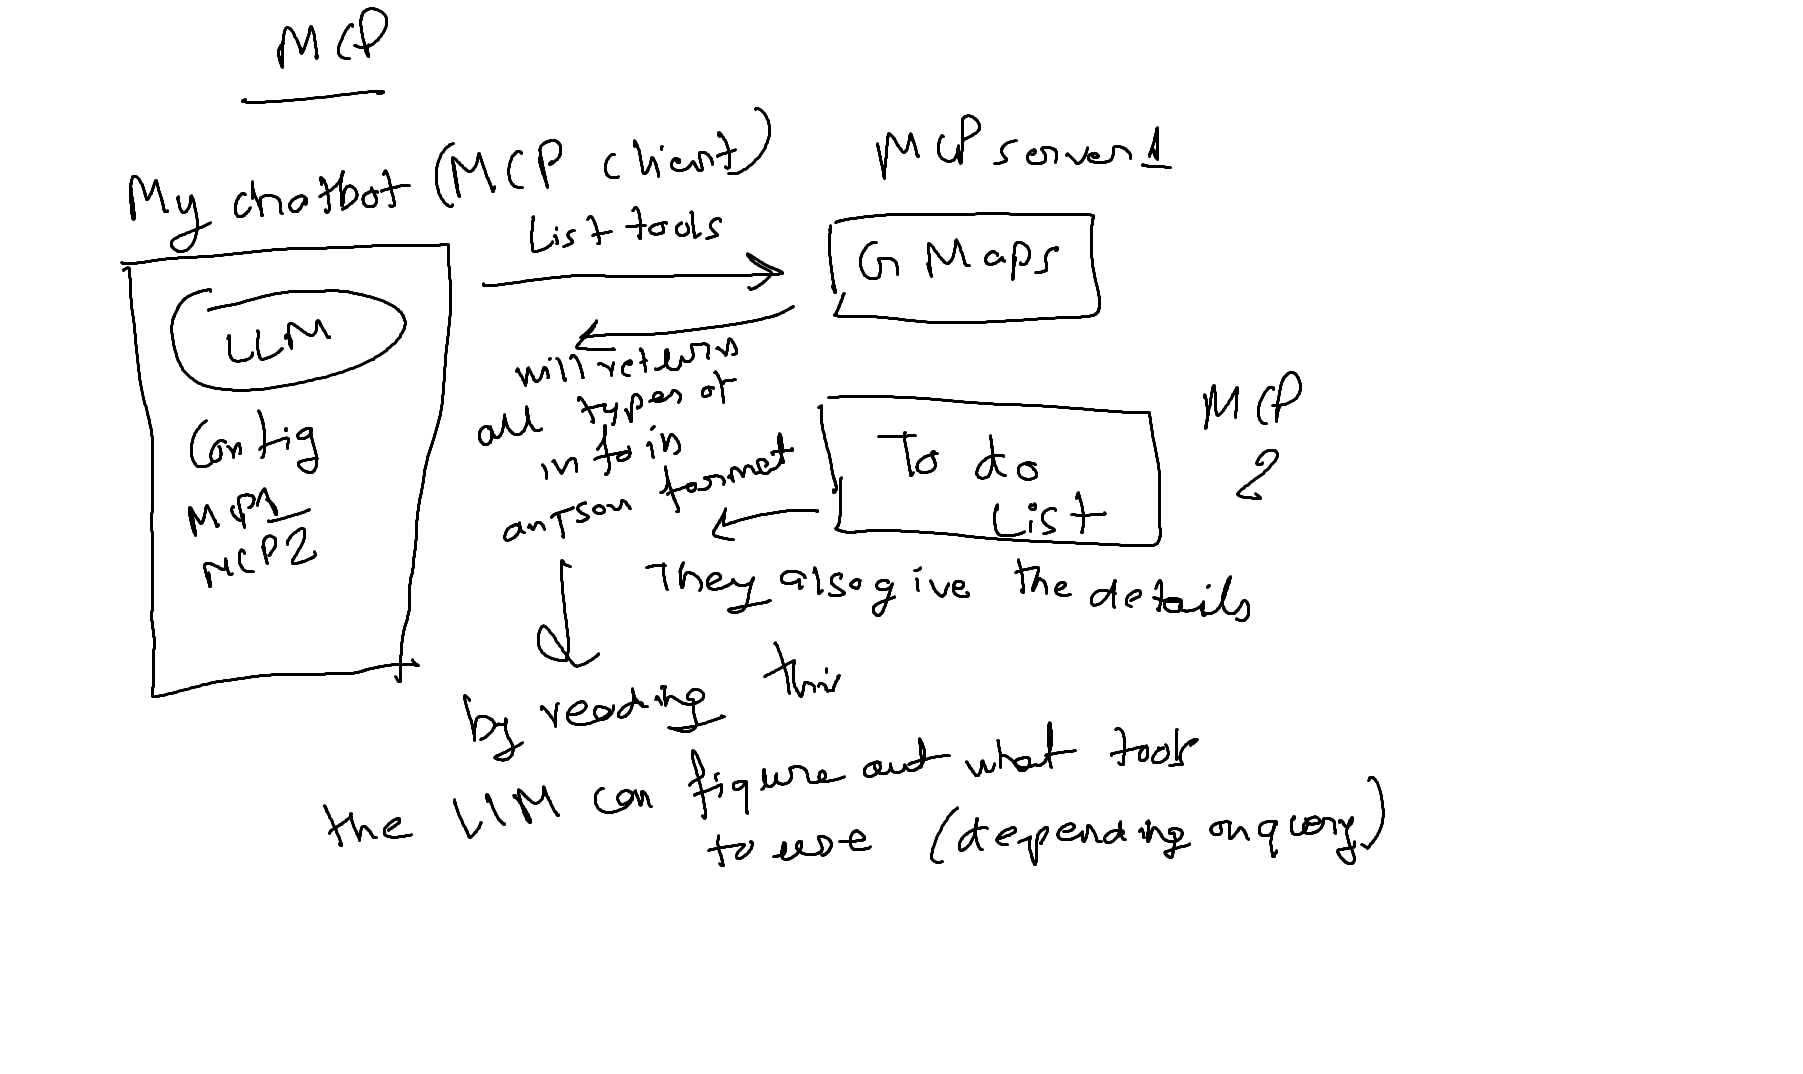 MCP
My chatbot (MCP client)
MCP server 1
List tools
G Maps
LLM
will return
all types of
info in
an JSON format
Config
MCP1
MCP2
To do
List
MCP
2
They also give the details
by reading this
the LLM can figure out what tools
to use (depending on query)